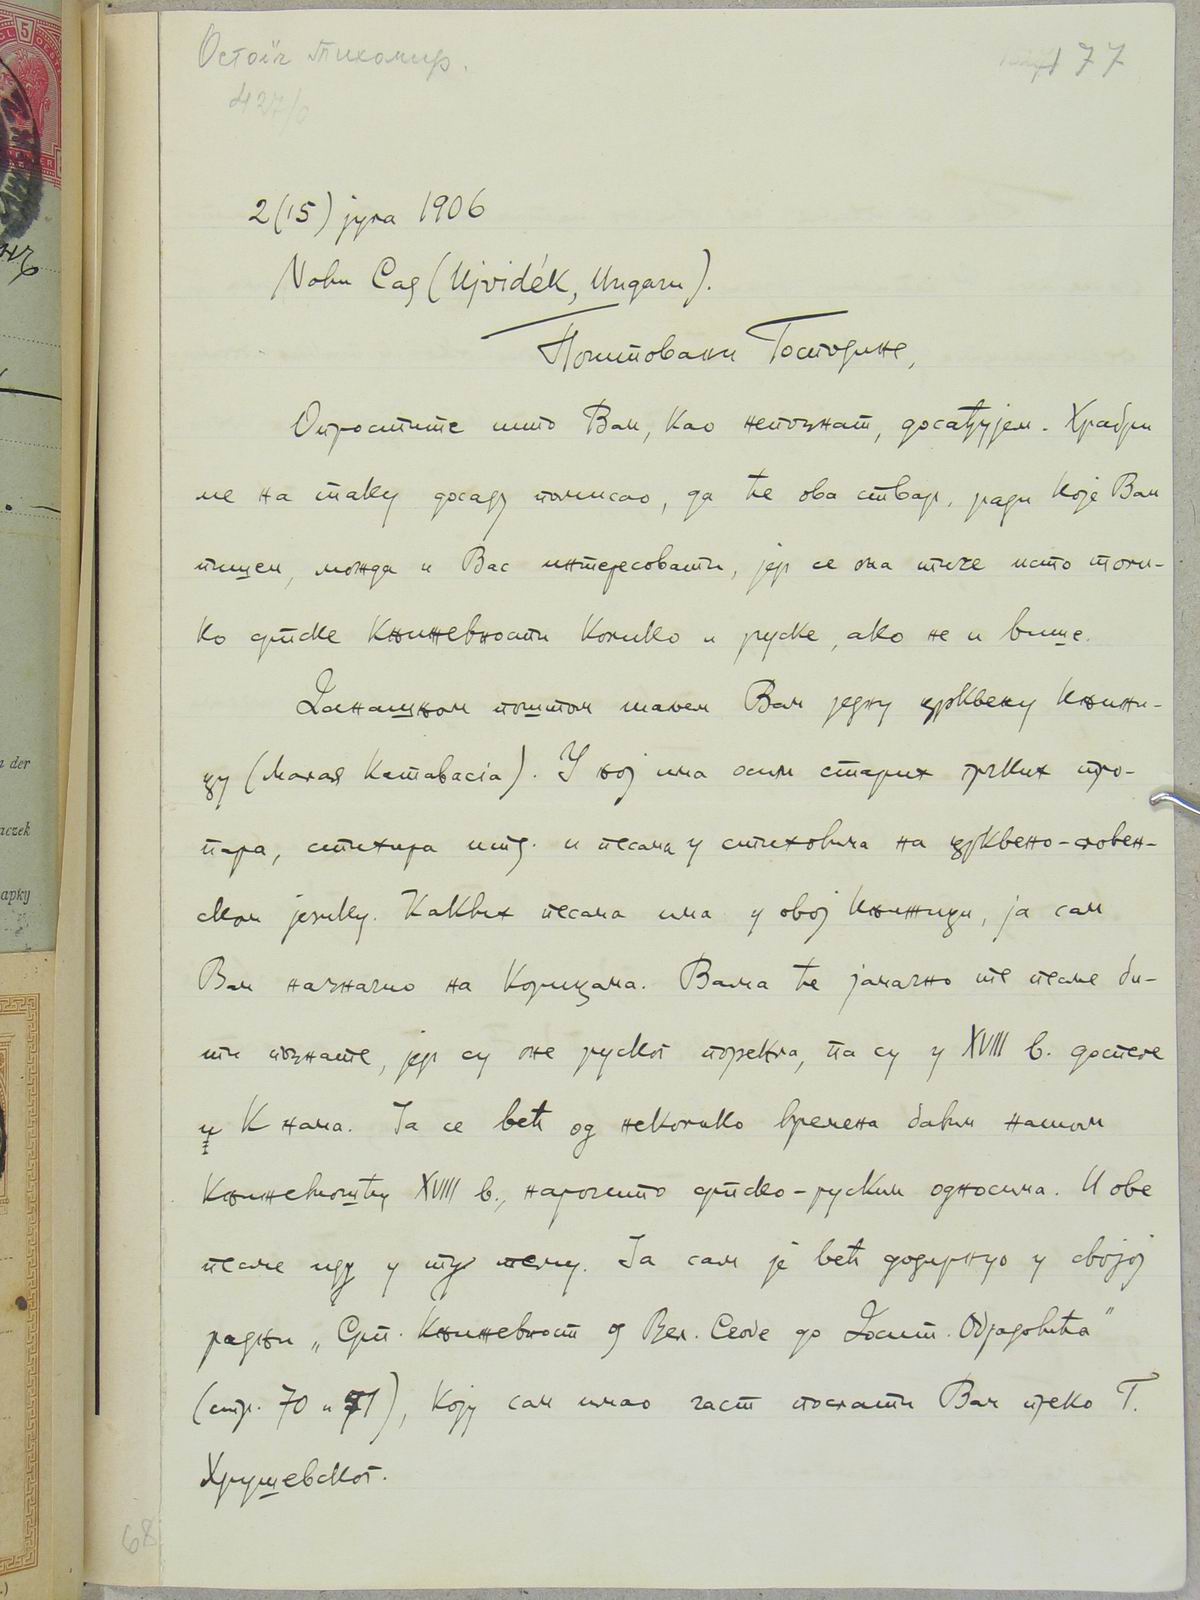 Остоїч Тихомир.
427/0
77
2(15) јула 1906
Нови Сад (Ujvidék, Ungarn).
Поштовани Господине,
Опростите што Вам, као непознат, досађујем. Храбри
ме на таку досаду помисао, да ће ова ствар, ради које Вам
пишем, можда и Вас интересовати, јер се она тиче исто толи-
ко српске књижевности колико и руске, ако не и више.
Данашњом поштом шаљем Вам једну црквену књижи-
цу (Малая Катавасіа). У њој има осим старих грчких тро-
пара, стихира итд. и песама у стиховима на црквено-словен-
ском језику. Каквих песама има у овој књижици, ја сам
Вам назначио на корицама. Вама ће јамачно те песме би-
ти познате, јер су оне руског порекла, па су у XVIII в. доспеле
и к нама. Ја се већ од неколико времена бавим нашом
књижевношћу XVIII в., нарочито српско-руским односима. И ове
песме иду у ту тему. Ја сам је већ додирнуо у својој
радњи „Срп. Књижевност од Вел. Сеобе до Досит. Обрадовића"
(стр. 70 и 71), коју сам имао част послати Вам преко Г.
Хрушевског.
68
n der
aczek
apky